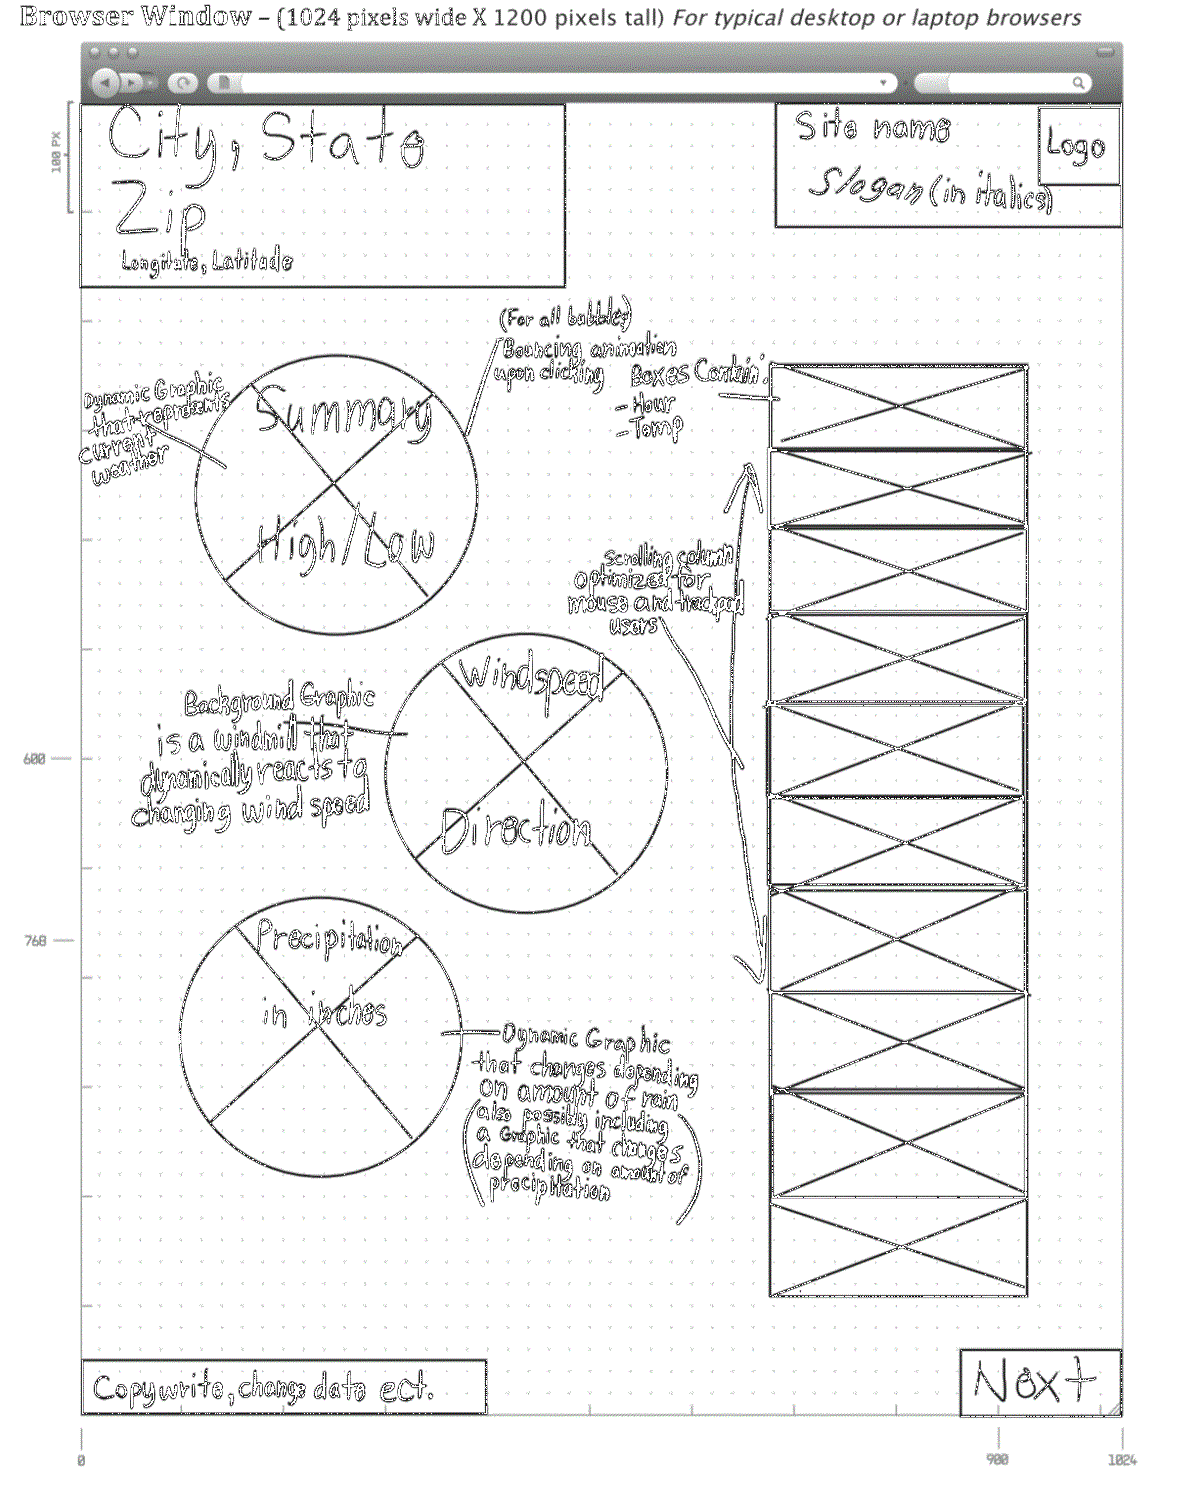 Browser Window – (1024 pixels wide X 1200 pixels tall) For typical desktop or laptop browsers
100 PX
City, State
Zip
Longitute, Latitude
Site name
Slogan (in italics)
Logo
(For all bubbles)
Bouncing animation
upon clicking
Dynamic Graphic
that represents
current
weather
Summary
High/Low
Boxes Contain:
- Hour
- Temp
Scrolling column
optimized for
mouse and trackpad
users
Background Graphic
is a windmill that
dynamically reacts to
changing wind speed
Windspeed
Direction
600
768
Precipitation
in inches
Dynamic Graphic
that changes depending
on amount of rain
(also possibly including
a Graphic that changes
depending on amount of
precipitation)
Copywrite, change date ect.
Next
0
900
1024